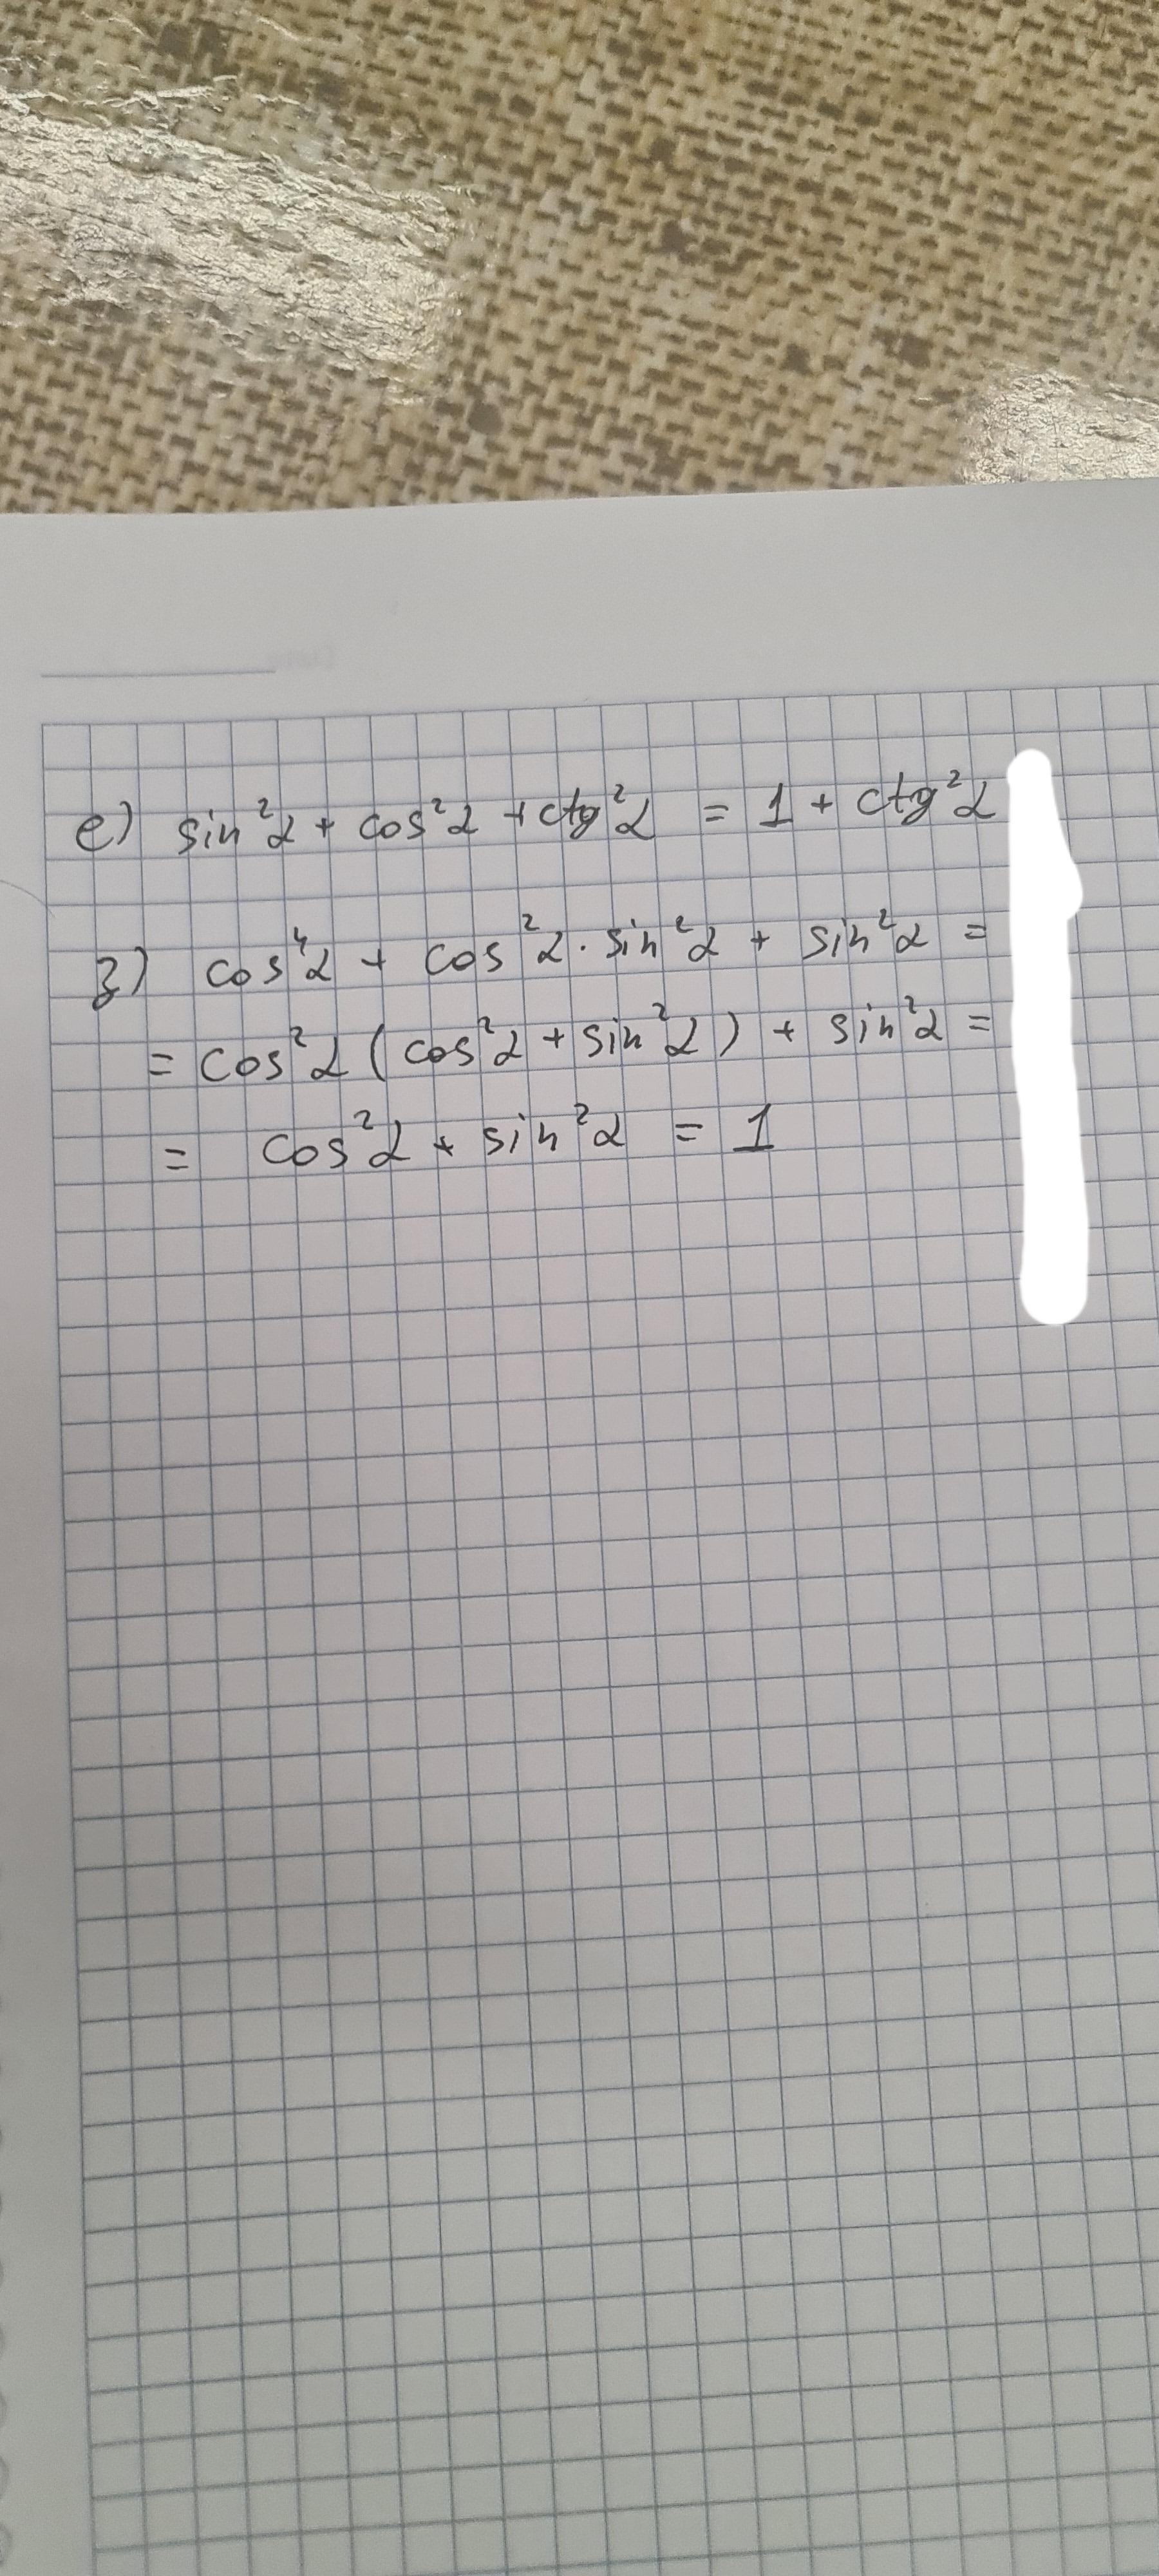 е) sin²α + cos²α + ctg²α = 1 + ctg²α
з) cos⁴α + cos²α · sin²α + sin²α =
= cos²α (cos²α + sin²α) + sin²α =
= cos²α + sin²α = 1